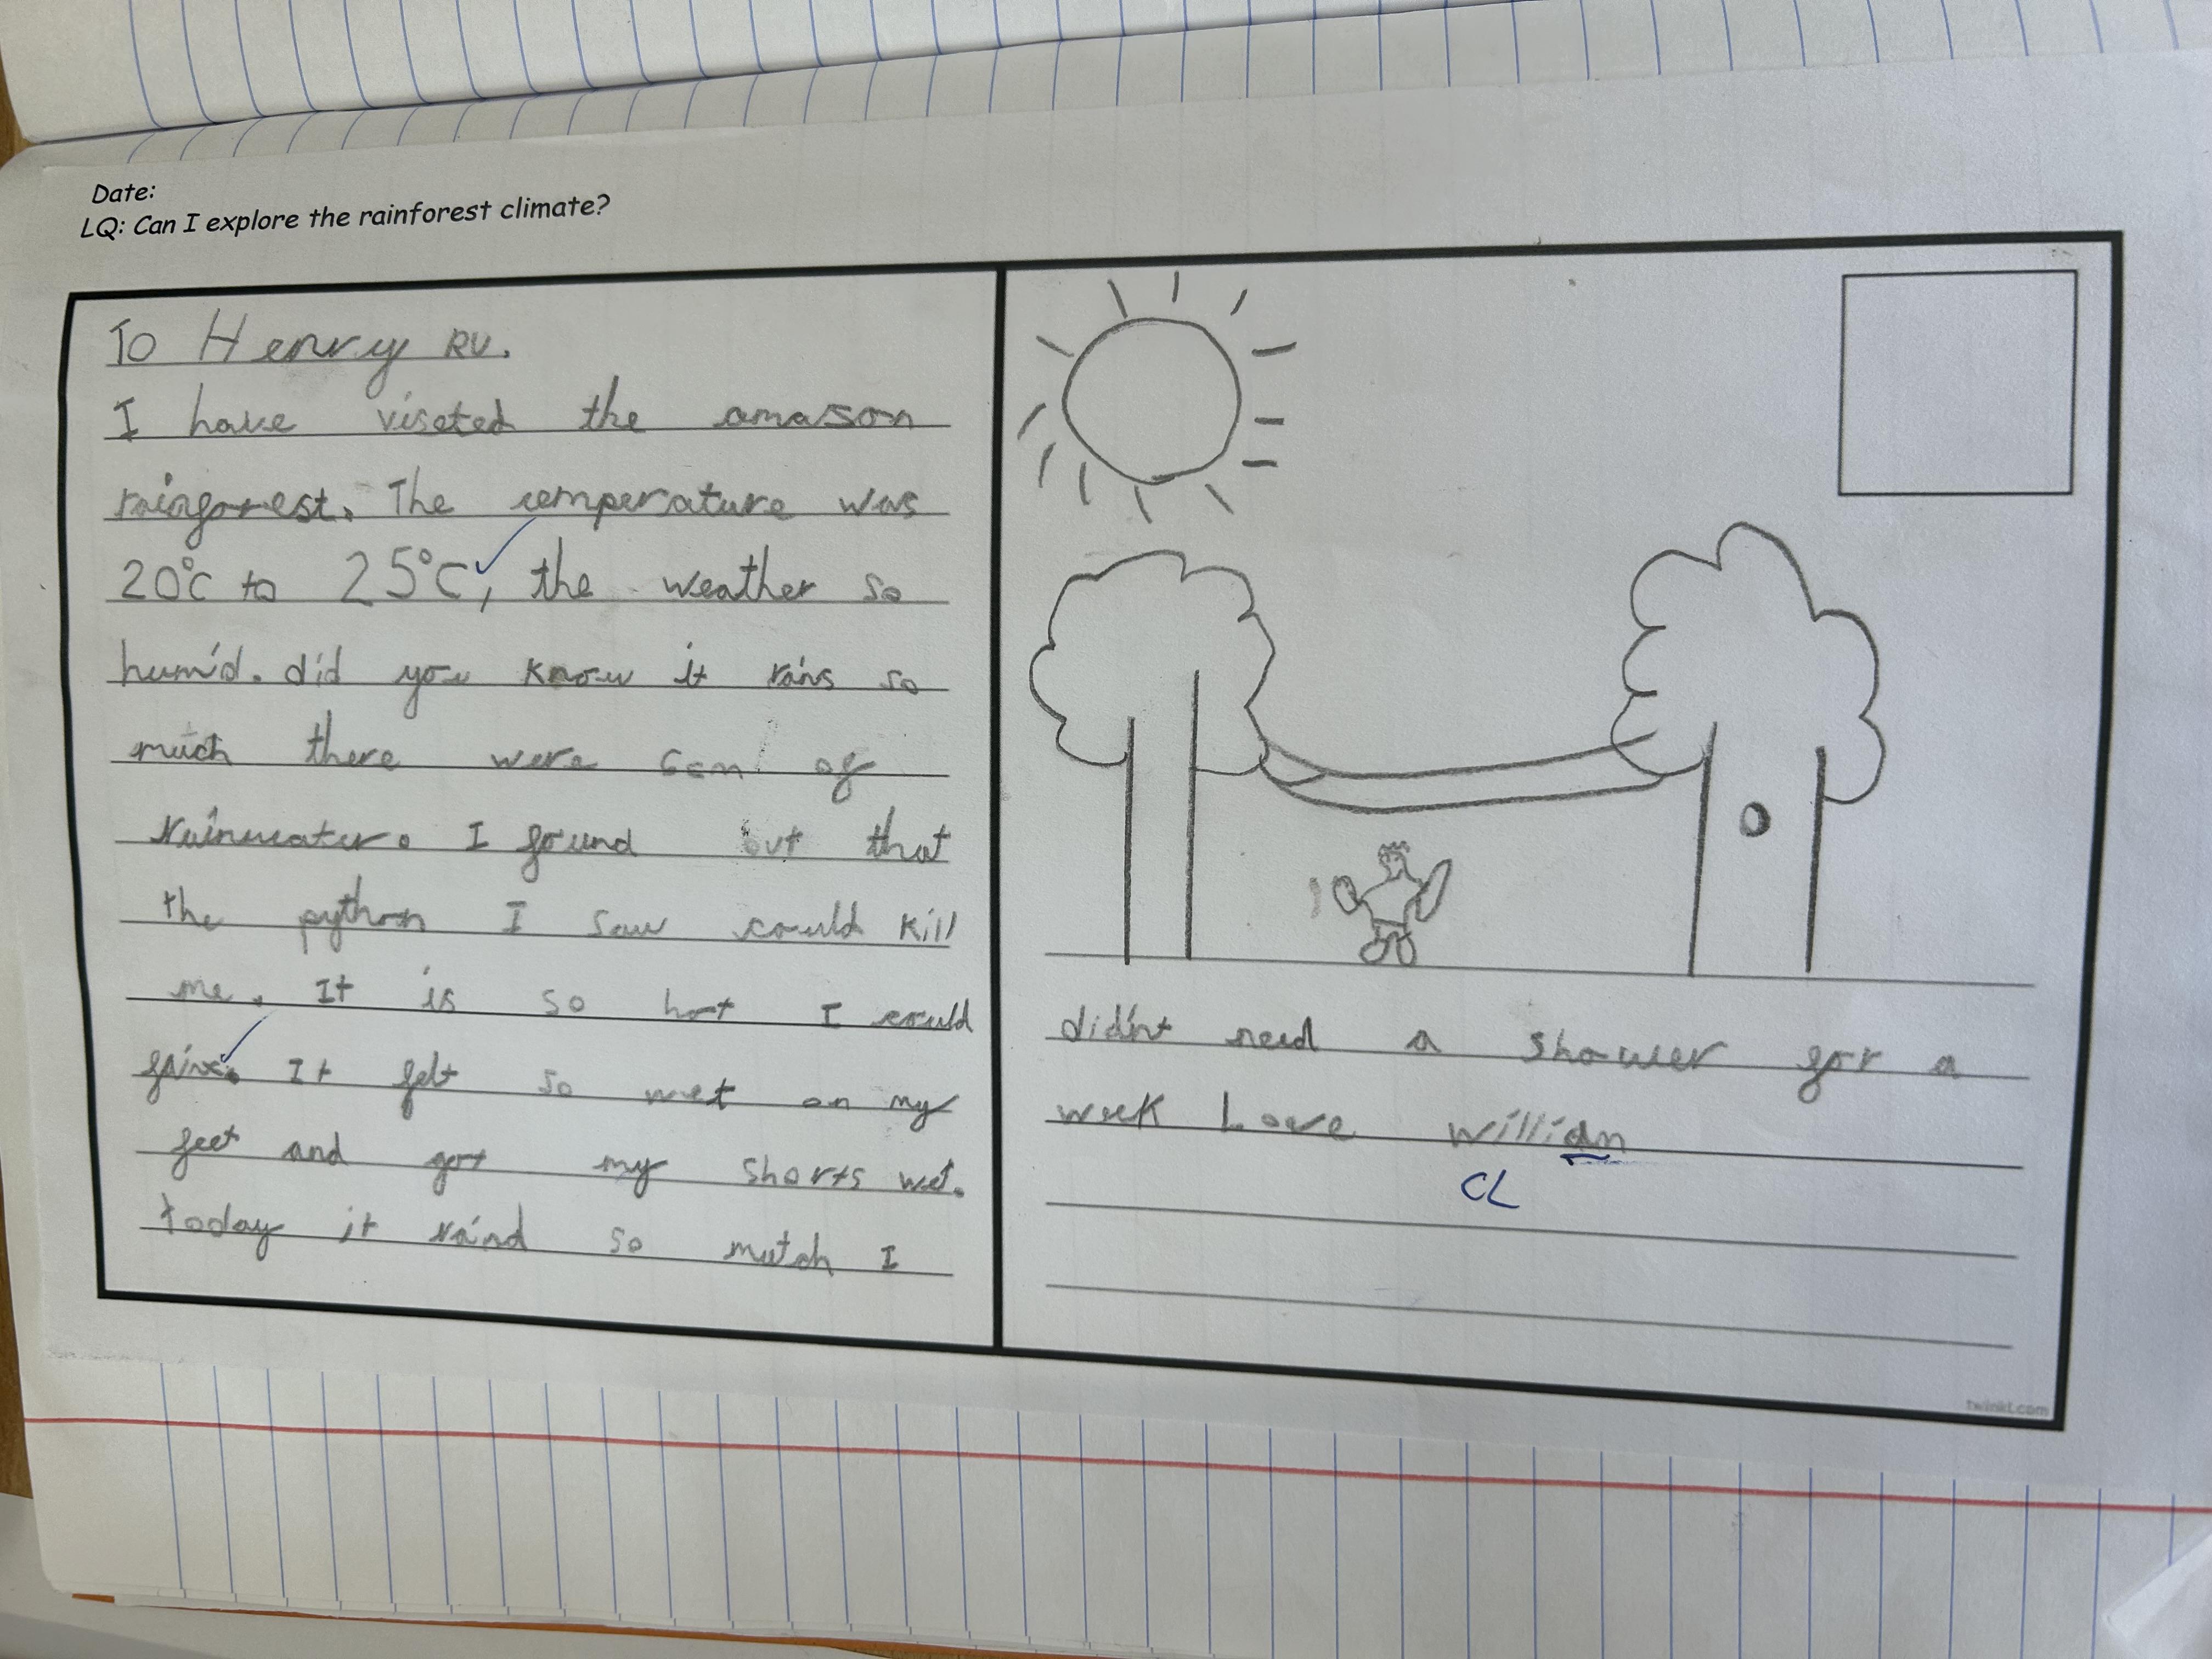 Date:
LQ: Can I explore the rainforest climate?
To Henry RV.
I have viseted the amason
rainforest. The temperature was
20°c to 25°C, the weather so
humid. did you know it rains so
much there were 6cm of
Rainwater. I found out that
the python I saw could kill
me. It is so hot I could
It felt so wet on my
feet and got my shorts wet.
today it raind so mutch I
didn't need a shower for a
week Love william
CL
twinkl.com